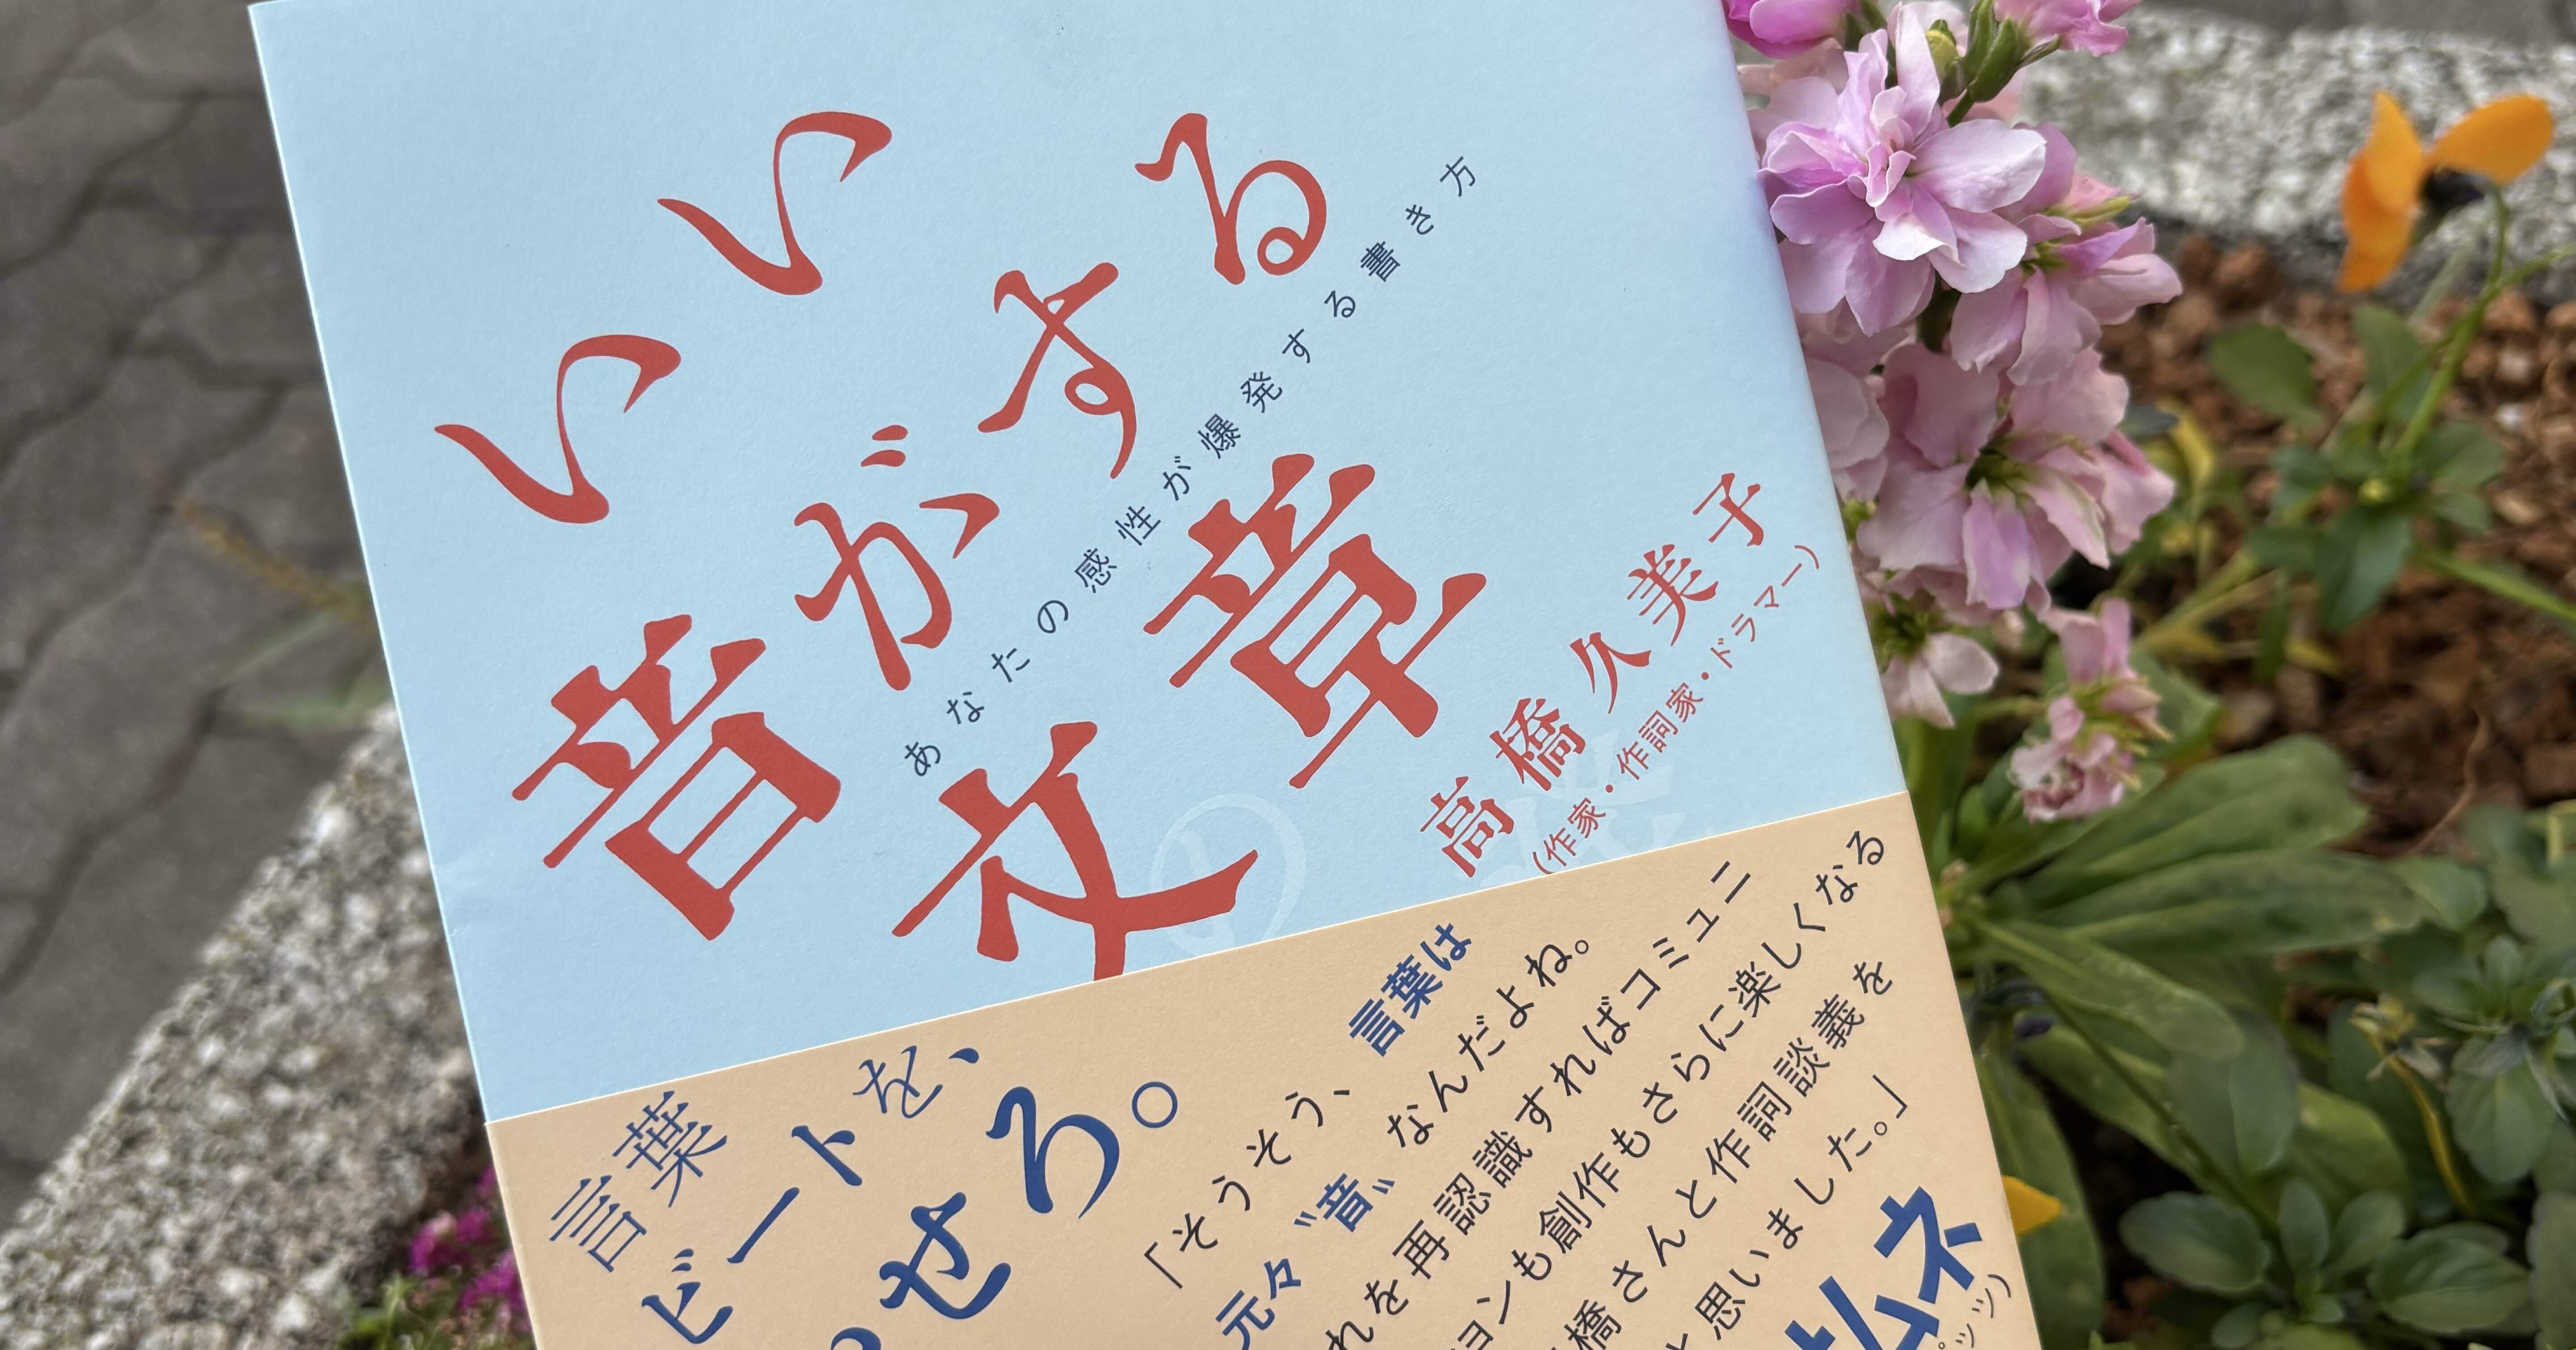 いい
音がする
文章
あなたの感性が爆発する書き方
高橋久美子
(作家・作詞家・ドラマー)
言葉
ビートを、
せろ。
「そうそう、言葉は
元々〝音〟なんだよね。
れを再認識すればコミュニ
ョンも創作もさらに楽しくなる
橋さんと作詞談義を
と思いました。」
ムネ